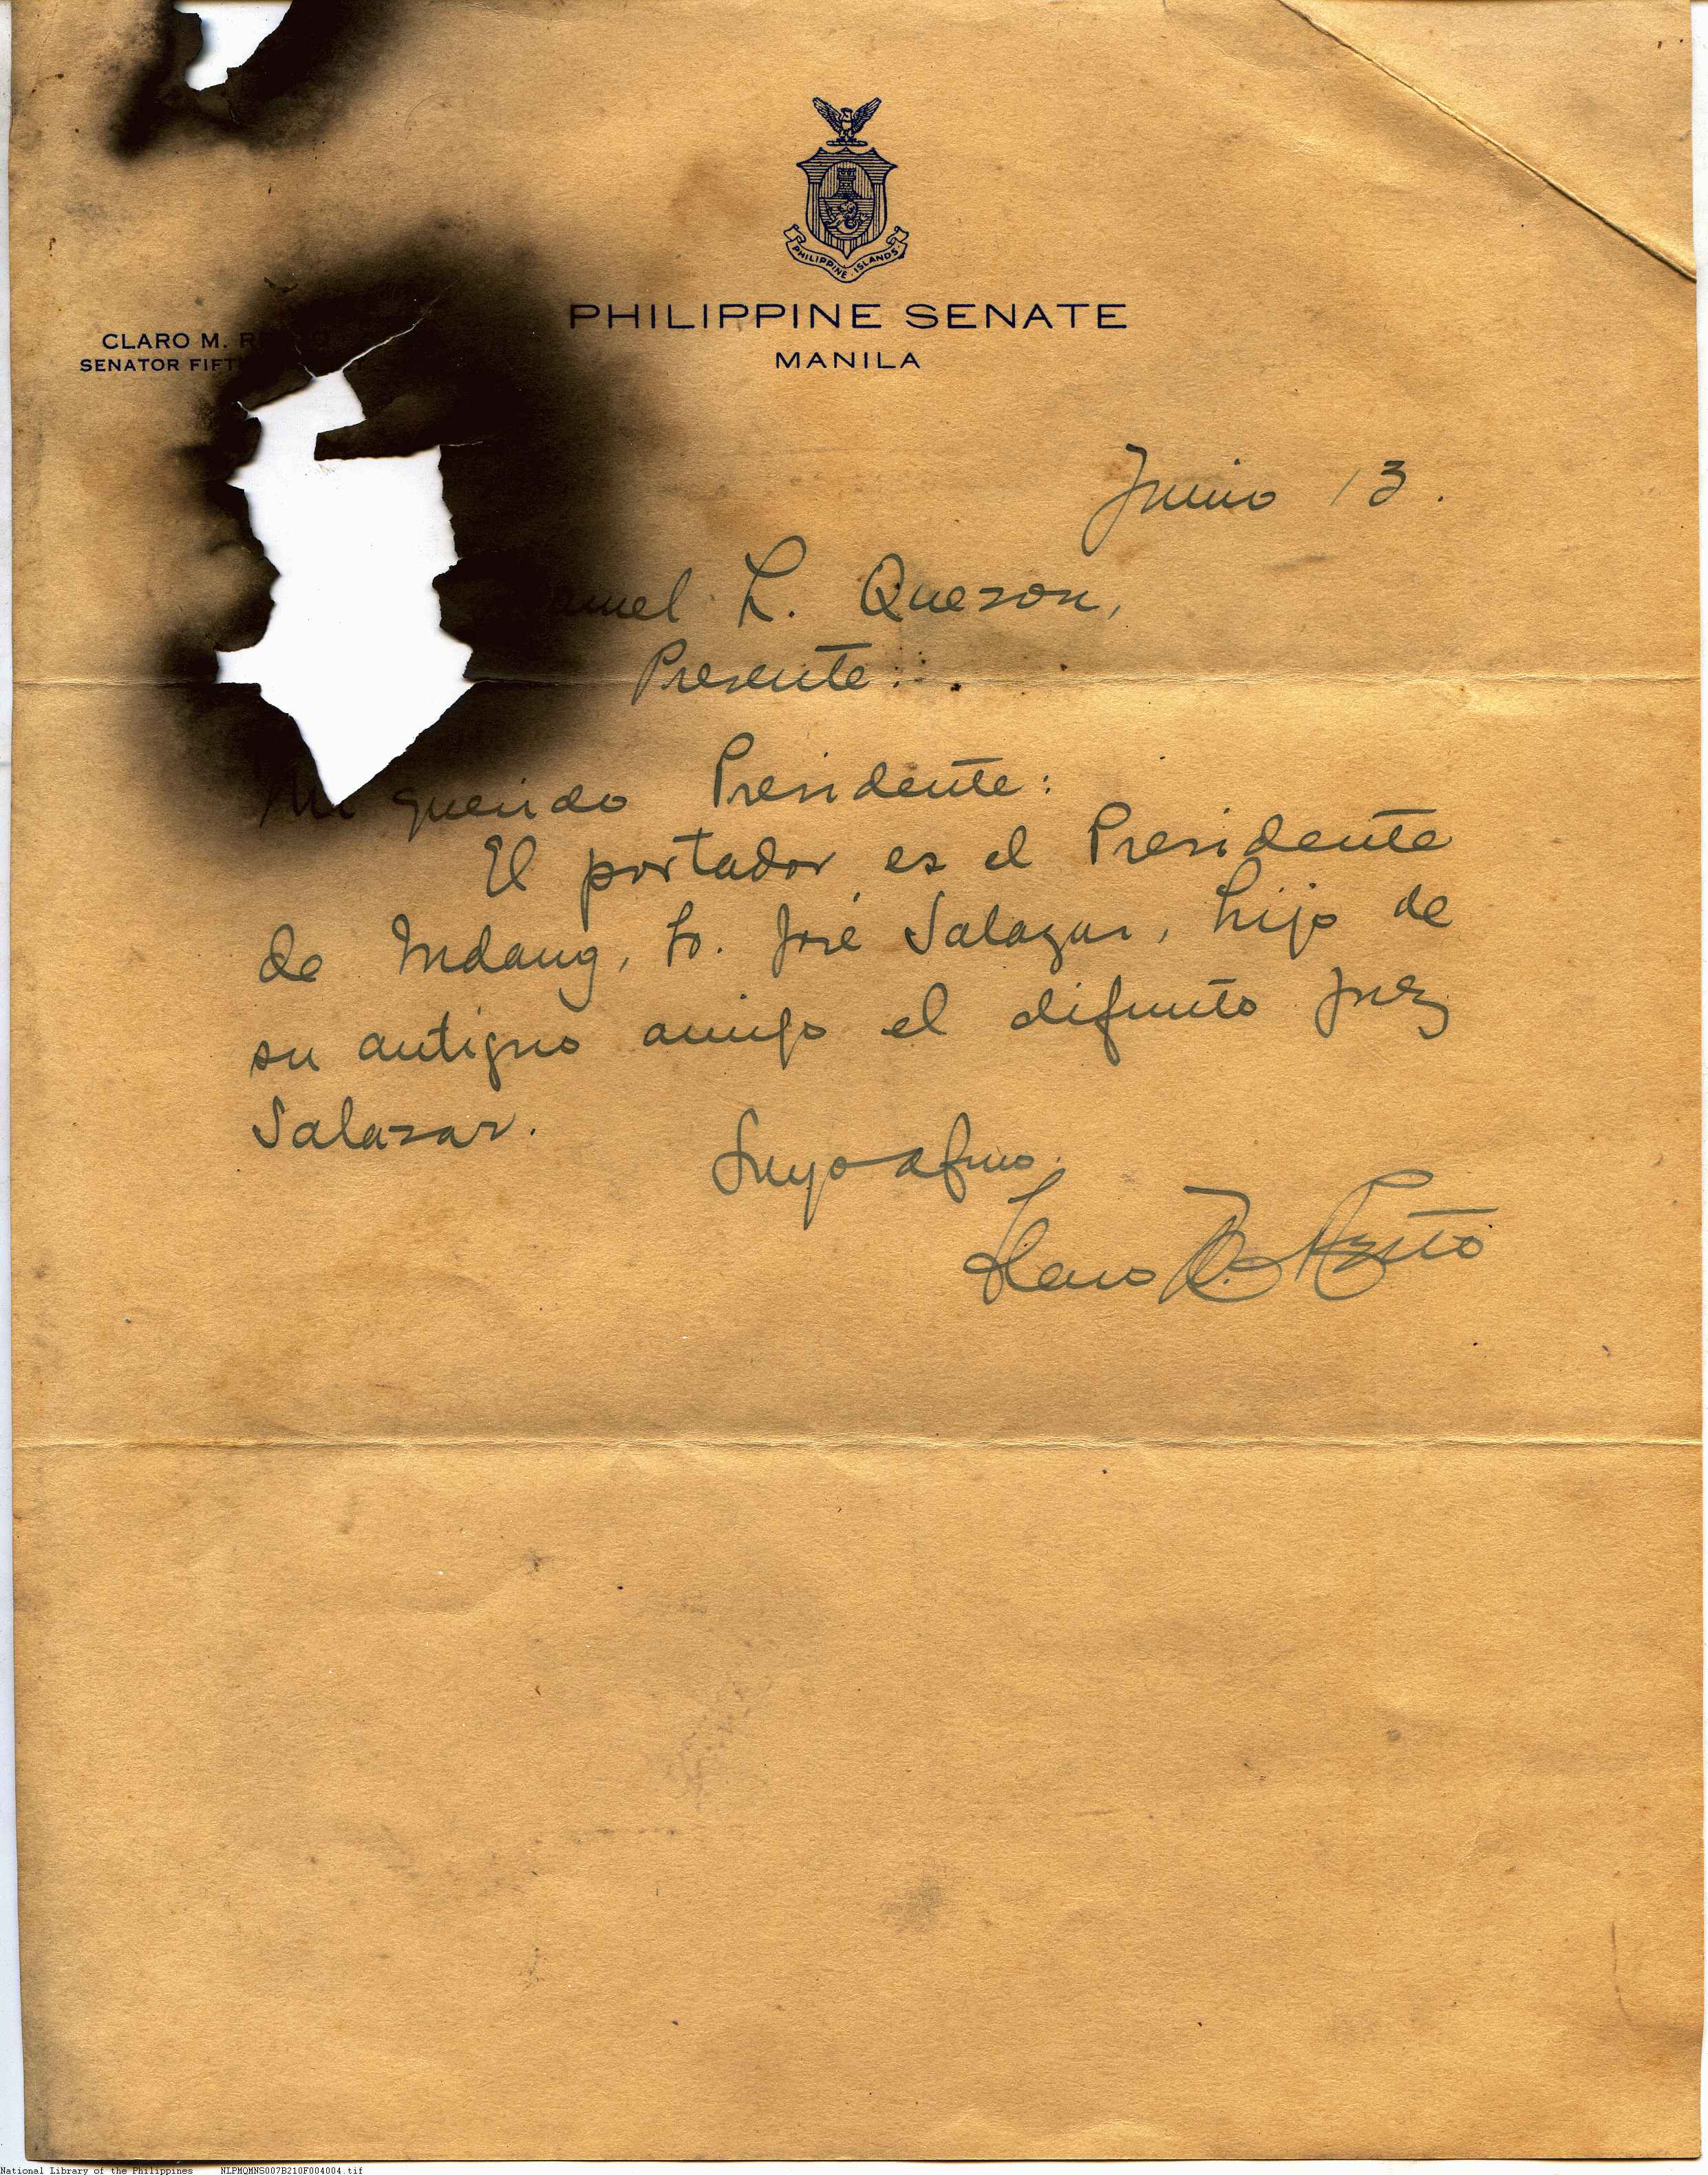 PHILIPPINE ISLANDS
PHILIPPINE SENATE
MANILA
CLARO M.
SENATOR
Junio 13.
L. Quezon,
Presente.
Mi querido Presidente:
El portador es el Presidente
de Indang, Sr. José Salazar, hijo de
su antiguo amigo el difunto Juez
Salazar.
Suyo afmo.
Claro M. Recto
National Library of the Philippines NLPMQMNS007B210F004004.tif